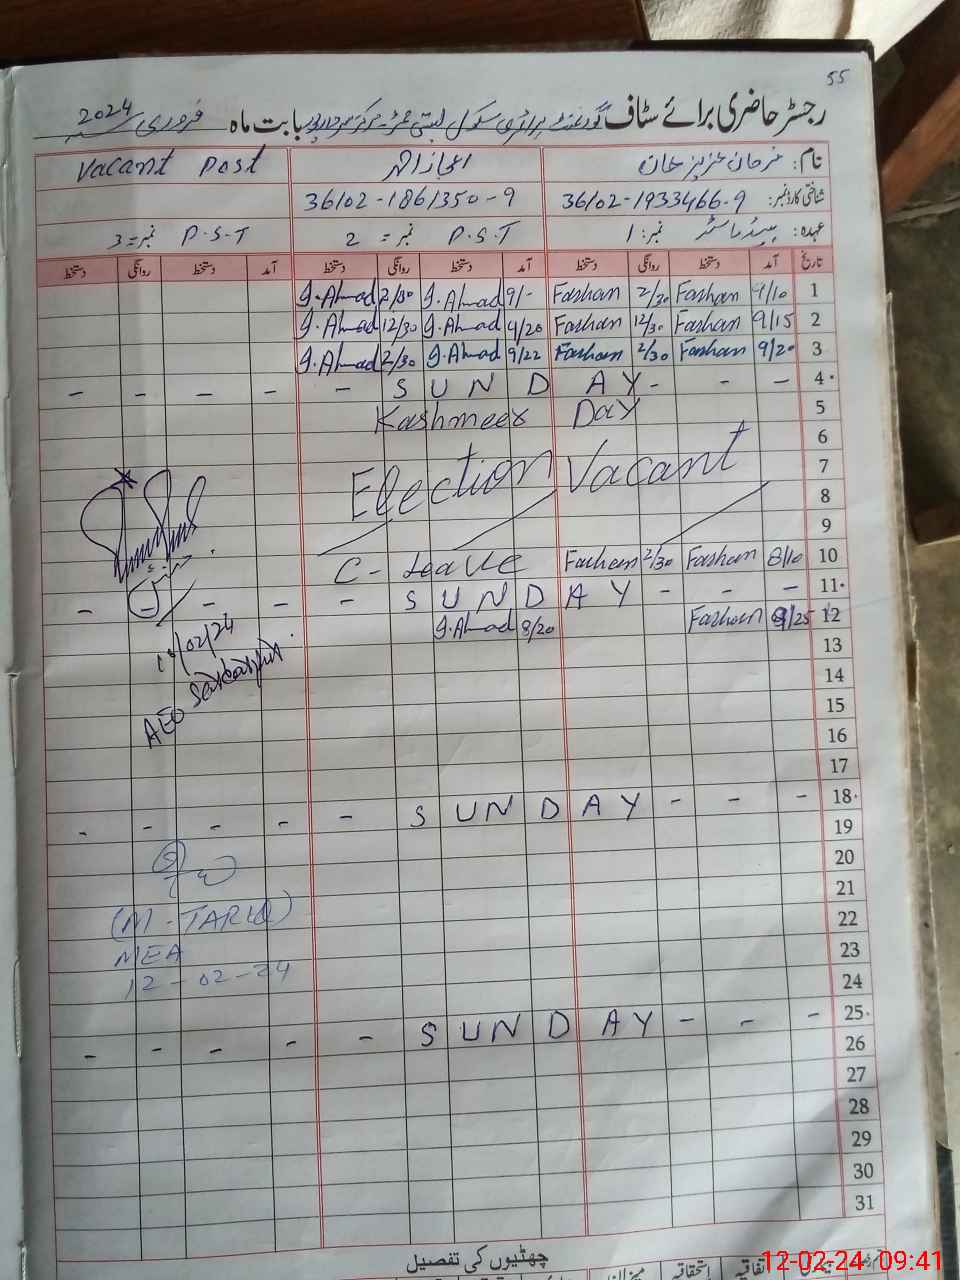 55
رجسٹر حاضری برائے سٹاف گورنمنٹ پرائمری سکول بستی بابت ماہ فروری 2024
نام: فرحان عزیز خان اعجاز احمد Vacant Post
شناختی کارڈ نمبر: 36102-1933466-9 36102-1861350-9
عہدہ: ہیڈ ماسٹر نمبر: 1 P.S.T نمبر = 2 P.S.T نمبر = 3
تاریخ آمد دستخط روانگی دستخط آمد دستخط روانگی دستخط آمد دستخط روانگی دستخط
1 9/10 Farhan 2/30 Farhan 9/- J.Ahmad 2/30 J.Ahmad
2 9/15 Farhan 12/30 Farhan 9/20 J.Ahmad 12/30 J.Ahmad
3 9/20 Farhan 2/30 Farhan 9/22 J.Ahmad 2/30 J.Ahmad
4 - - - - - S U N D A Y - - -
5 Kashmeer Day
6
7 Election Vacant
8
9
10 8/10 Farhan 2/30 Farhan C-Leave
11 - - - - S U N D A Y - - -
12 8/25 Farhan 8/20 J.Ahmad
/02/24
AEO Sarkarpur
13
14
15
16
17
18 - - - - - S U N D A Y - - -
19
20
21
22
23
24
(M-TARIQ)
MEA
12-02-24
25 - - - - - S U N D A Y - - -
26
27
28
29
30
31
چھٹیوں کی تفصیل
اتفاقیہ استحقاقیہ میزان
12-02-24 09:41